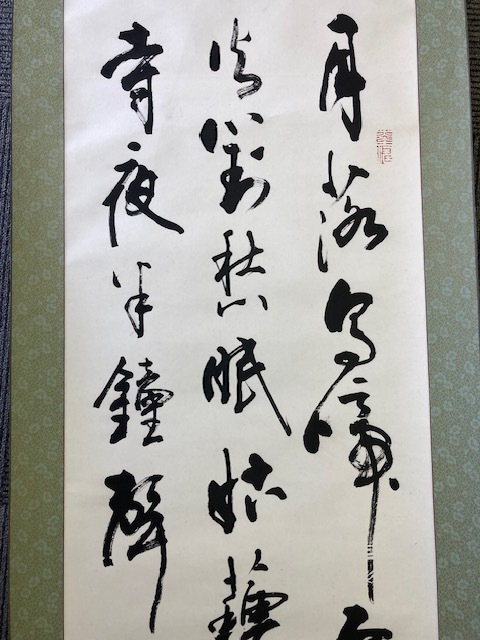 月落烏啼
火對愁眠姑蘇
寺夜半鐘聲